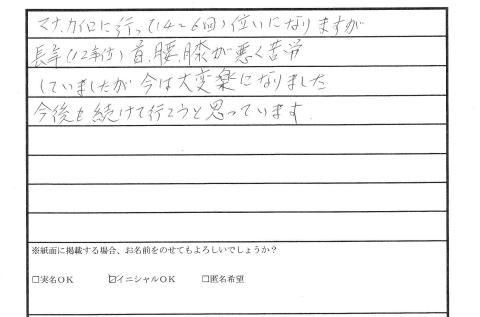 マナ.カイロに行って(14~6回)位いになりますが
長年(12年位)首.腰.膝が悪く苦労
していましたが今は大変楽になりました
今後も続けて行こうと思っています.
※紙面に掲載する場合、お名前をのせてもよろしいでしょうか？
□実名OK ☑イニシャルOK □匿名希望